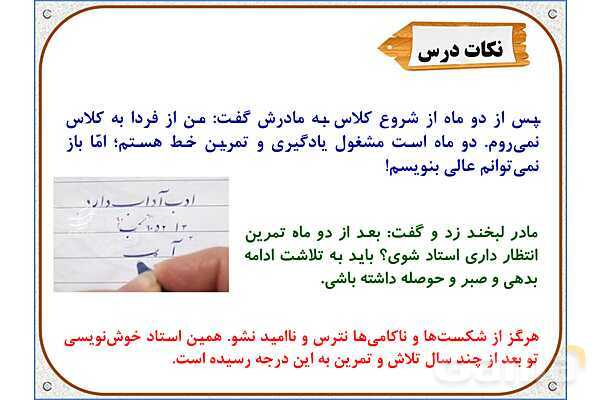 نکات درس
پس از دو ماه از شروع کلاس به مادرش گفت: من از فردا به کلاس
نمی‌روم. دو ماه است مشغول یادگیری و تمرین خط هستم؛ امّا باز
نمی‌توانم عالی بنویسم!
ادب آداب دارد
مادر لبخند زد و گفت: بعد از دو ماه تمرین
انتظار داری استاد شوی؟ باید به تلاشت ادامه
بدهی و صبر و حوصله داشته باشی.
هرگز از شکست‌ها و ناکامی‌ها نترس و ناامید نشو. همین استاد خوش‌نویسی
تو بعد از چند سال تلاش و تمرین به این درجه رسیده است.